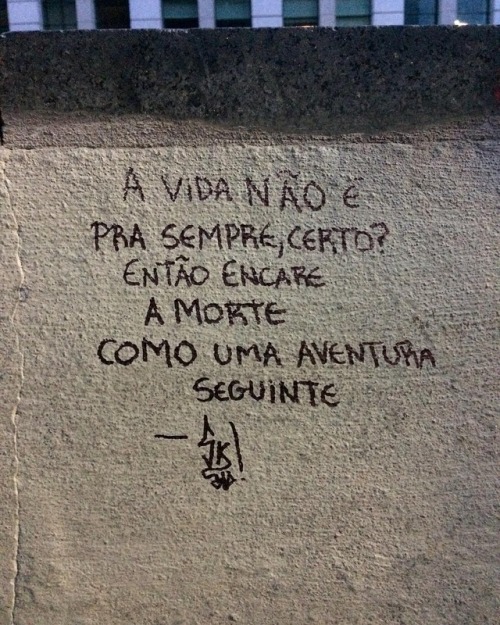 A VIDA NÃO É
PRA SEMPRE, CERTO?
ENTÃO ENCARE
A MORTE
COMO UMA AVENTURA
SEGUINTE